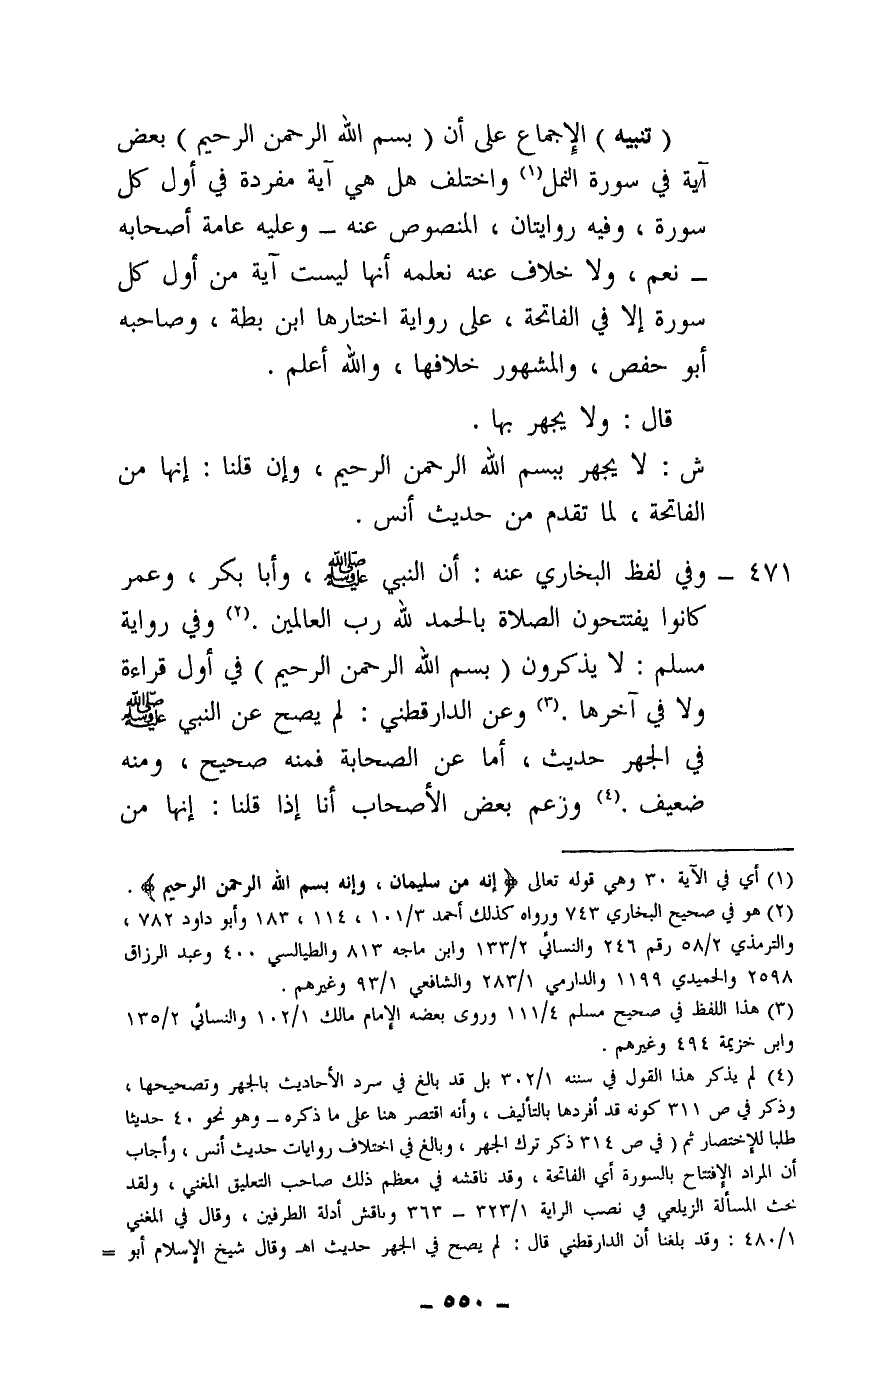 ( تنبيه ) الإجماع على أن ( بسم الله الرحمن الرحيم ) بعض
آية في سورة النمل(١) واختلف هل هي آية مفردة في أول كل
سورة ، وفيه روايتان ، المنصوص عنه ــ وعليه عامة أصحابه
ــ نعم ، ولا خلاف عنه نعلمه أنها ليست آية من أول كل
سورة إلا في الفاتحة ، على رواية اختارها ابن بطة ، وصاحبه
أبو حفص ، والمشهور خلافها ، والله أعلم .
قال : ولا يجهر بها .
ش : لا يجهر ببسم الله الرحمن الرحيم ، وإن قلنا : إنها من
الفاتحة ، لما تقدم من حديث أنس .
٤٧١ ــ وفي لفظ البخاري عنه : أن النبي ﷺ ، وأبا بكر ، وعمر
كانوا يفتتحون الصلاة بالحمد لله رب العالمين .(٢) وفي رواية
مسلم : لا يذكرون ( بسم الله الرحمن الرحيم ) في أول قراءة
ولا في آخرها .(٣) وعن الدارقطني : لم يصح عن النبي ﷺ
في الجهر حديث ، أما عن الصحابة فمنه صحيح ، ومنه
ضعيف .(٤) وزعم بعض الأصحاب أنا إذا قلنا : إنها من
(١) أي في الآية ٣٠ وهي قوله تعالى ﴿ إنه من سليمان ، وإنه بسم الله الرحمن الرحيم ﴾ .
(٢) هو في صحيح البخاري ٧٤٣ ورواه كذلك أحمد ١٠١/٣ ، ١١٤ ، ١٨٣ وأبو داود ٧٨٢ ،
والترمذي ٥٨/٢ رقم ٢٤٦ والنسائي ١٣٣/٢ وابن ماجه ٨١٣ والطيالسي ٤٠٠ وعبد الرزاق
٢٥٩٨ والحميدي ١١٩٩ والدارمي ٢٨٣/١ والشافعي ٩٣/١ وغيرهم .
(٣) هذا اللفظ في صحيح مسلم ١١١/٤ وروى بعضه الإمام مالك ١٠٢/١ والنسائي ١٣٥/٢
وابن خزيمة ٤٩٤ وغيرهم .
(٤) لم يذكر هذا القول في سننه ٣٠٢/١ بل قد بالغ في سرد الأحاديث بالجهر وتصحيحها ،
وذكر في ص ٣١١ كونه قد أفردها بالتأليف ، وأنه اقتصر هنا على ما ذكره ــ وهو نحو ٤٠ حديثا
طلبا للإختصار ثم ( في ص ٣١٤ ذكر ترك الجهر ، وبالغ في اختلاف روايات حديث أنس ، وأجاب
أن المراد الإفتتاح بالسورة أي الفاتحة ، وقد ناقشه في معظم ذلك صاحب التعليق المغني ، ولقد
بحث المسألة الزيلعي في نصب الراية ٣٢٣/١ ــ ٣٦٣ وناقش أدلة الطرفين ، وقال في المغني
٤٨٠/١ : وقد بلغنا أن الدارقطني قال : لم يصح في الجهر حديث اهـ وقال شيخ الإسلام أبو =
ــ ٥٥٠ ــ